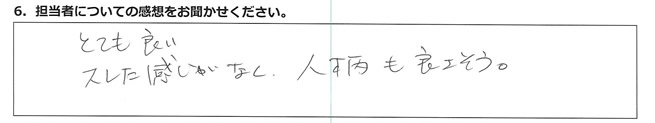 6．担当者についての感想をお聞かせください。
とても良い
スレた感じがなく、人柄も良さそう。